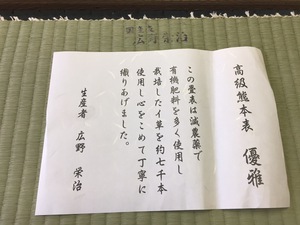 高級熊本表　優雅
この畳表は減農薬で
有機肥料を多く使用し
栽培したイ草を約七千本
使用し心をこめて丁寧に
織りあげました。
生産者　広野　栄治